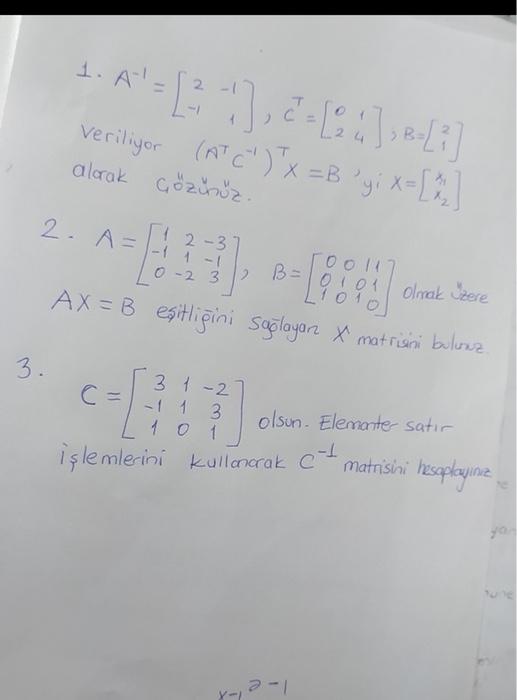 1. A⁻¹ = [2 -1; -1 1], Cᵀ = [0 1; 2 4], B = [2; 1]
veriliyor (AᵀC⁻¹)ᵀ X = B 'yi X = [x₁; x₂]
alarak Çözünüz.
2. A = [1 2 -3; -1 1 -1; 0 -2 3], B = [0 0 1 1; 0 1 0 1; 1 0 1 0] olmak üzere
AX = B eşitliğini sağlayan X matrisini bulunuz.
3.
C = [3 1 -2; -1 1 3; 1 0 1] olsun. Elemanter satır
işlemlerini kullanarak C⁻¹ matrisini hesaplayınız